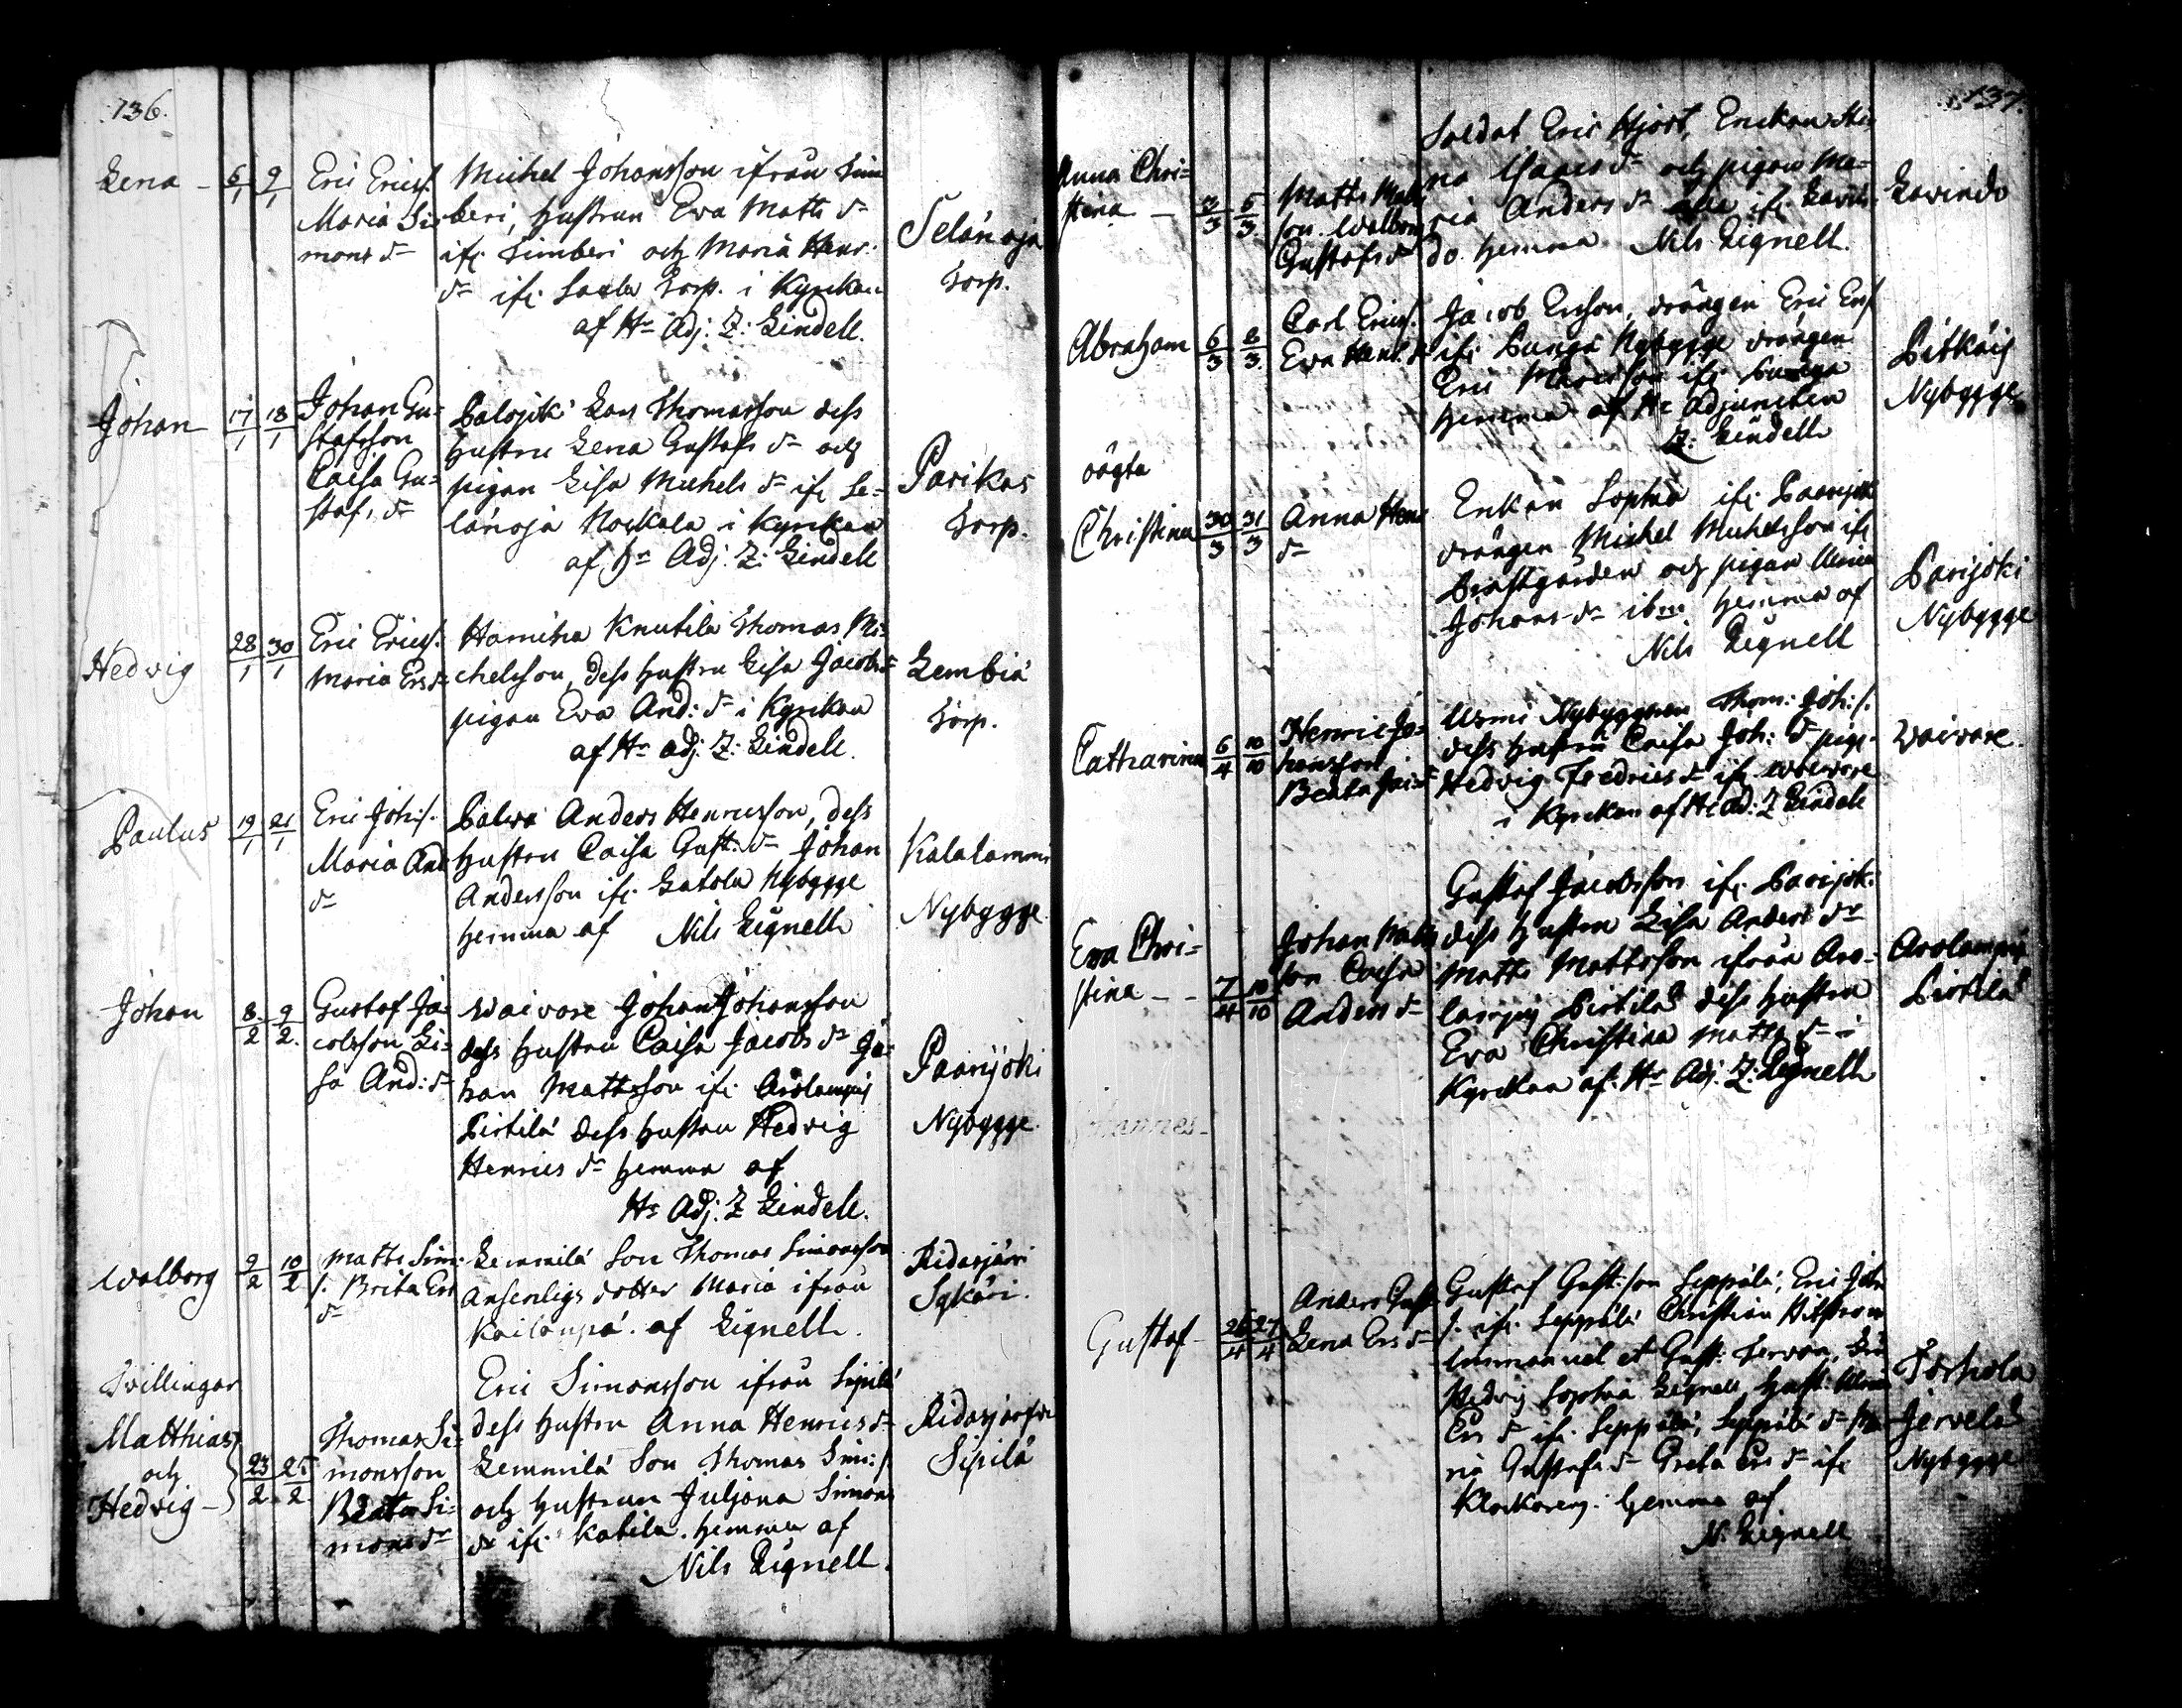 136.
Lena - 6/1 9/1
Eric Ericss.
Maria Si-
mons dr
Michel Johansson ifrån Sim
beri, hustrun Eva Matts dr
ifr. Simberi och Maria Henr.
dr ifr. Torp. i Kyrckan
af Hr Adj: Z: Lindell.
Selänoja
Torp.
Johan 17/1 18/1
Johan Gu-
stafsson
Caisa Gu-
staf. dr
Palojoki Lars Thomasson dess
hustru Lena Gustafs dr och
pigan Lisa Michels dr ifr Se-
länoja i Kyrckan
af Hr Adj: Z: Lindell
Parikas
Torp.
Hedvig 28/1 30/1
Eric Ericss.
Maria Ers dr
Knutila Thomas Mi-
chelsson, dess hustru Lisa Jacobs dr
pigan Eva And: dr i Kyrckan
af Hr adj: Z: Lindell.
Lembiä
Torp.
Paulus 19/1 21/1
Eric Joh:s.
Maria And
dr
Anders Henricsson, dess
hustru Caisa Gust: dr Johan
Andersson ifr. Latola Nybygge
hemma af Nils Lignell
Kalalammi
Nybygge
Johan 8/2 9/2
Gustaf Ja-
cobsson Li-
sa And: dr
Waivare Johan Johansson
dess hustru Caisa Jacobs dr Jo-
han Mattsson ifr. Arolampij
Pirtilä dess hustru Hedvig
Henrics dr hemma af
Hr Adj: Z Lindell.
Paarijoki
Nybygge.
Walborg 9/2 10/2
Matts Sim:
s. Brita Ers
dr
Lemmilä Son Thomas Simonsson
dotter Maria ifrån
af Lignell.
Ridasjärvi
Tvillingar
Matthias
och
Hedvig - 23/2 25/2
Thomas Si-
monsson
Beata Si-
mons dr
Eric Simonsson ifrån Sipilä
dess hustru Anna Henrics dr
Lemmilä Son Thomas Sim:s
och hustrun Juliana Simons
dr ifr. Katila. hemma af
Nils Lignell.
Ridasjärfvi
Sipilä
137.
Anna Chri-
stina - 3/3 5/3
Matts Matts
son. Walborg
Gustafs dr
Soldat Eric Hjort, Enckan Sti
na Isaacs dr och pigan Ma-
ria Anders dr ifr. Kavin-
do hemma Nils Lignell.
Kavindo
Abraham 6/3 8/3
Carl Ericss.
Eva Henr. dr
Jacob Ericson, drängen Eric Ers
ifr. Nybygge drängen
Eric ifr.
hemma af Hr Adjuncten
Z: Lindell
Pitkäis
Nybygge
oägta
Christina 30/3 31/3
Anna Henr
dr
Enkan Sophia ifr. Paarijok
drängen Michel Michelsson ifr
Prästgården och pigan Maria
Johans dr ibm. hemma af
Nils Lignell
Parijoki
Nybygge
Catharina 6/4 10/10
Henric Jo-
hansson
Beata
Nybyggaren Thom: Joh:s.
dess hustru Caisa Joh: dr pig.
Hedvig Fredrics dr ifr. Waivare
i Kyrckan af Hr Ad: Z Lindell
Waivare.
Eva Chri-
stina - - 7/4 10/10
Johan Matts
son Caisa
Anders dr
Gustaf Jacobsson ifr. Parijok.
dess hustru Lisa Anders dr
Matts Mattsson ifrån Aro-
lampij Pirtilä dess hustru
Eva Christina Matts dr i
Kyrckan af Hr Adj: Z: Lignell
Arolampij
Pirtilä
Gustaf - 26/4 27/4
Anders Gust
Lena Ers dr
Gustaf Gust:son Seppälä, Eric Joh
s. ifr. Seppälä Christian
Immanuel et Gust: Tervon,
Hedvig Sophia Lignell, hust. Maria
Ers dr ifr. Seppälä, Seppälä dr Ma
ria Gustafs dr Greta Ers dr ifr
Klockareg. hemma af
N. Lignell
Torhola
Jervelä
Nybygge